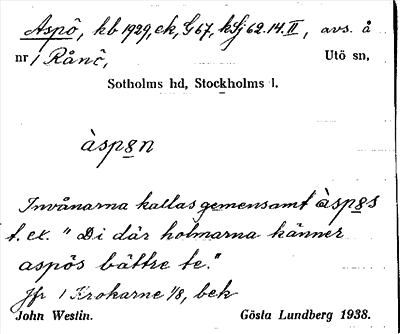 Aspö, kb 1929, ek, G67, kSj 62.14.II, avs. å
nr 1 Rånö, Utö sn,
Sotholms hd, Stockholms l.
àspən
Invånarna kallas gemensamt àspəs
t. ex. "Di där holmarna känner
aspös bättre te."
Jfr 1 Krokarne 1/8, bek
John Westin. Gösta Lundberg 1938.